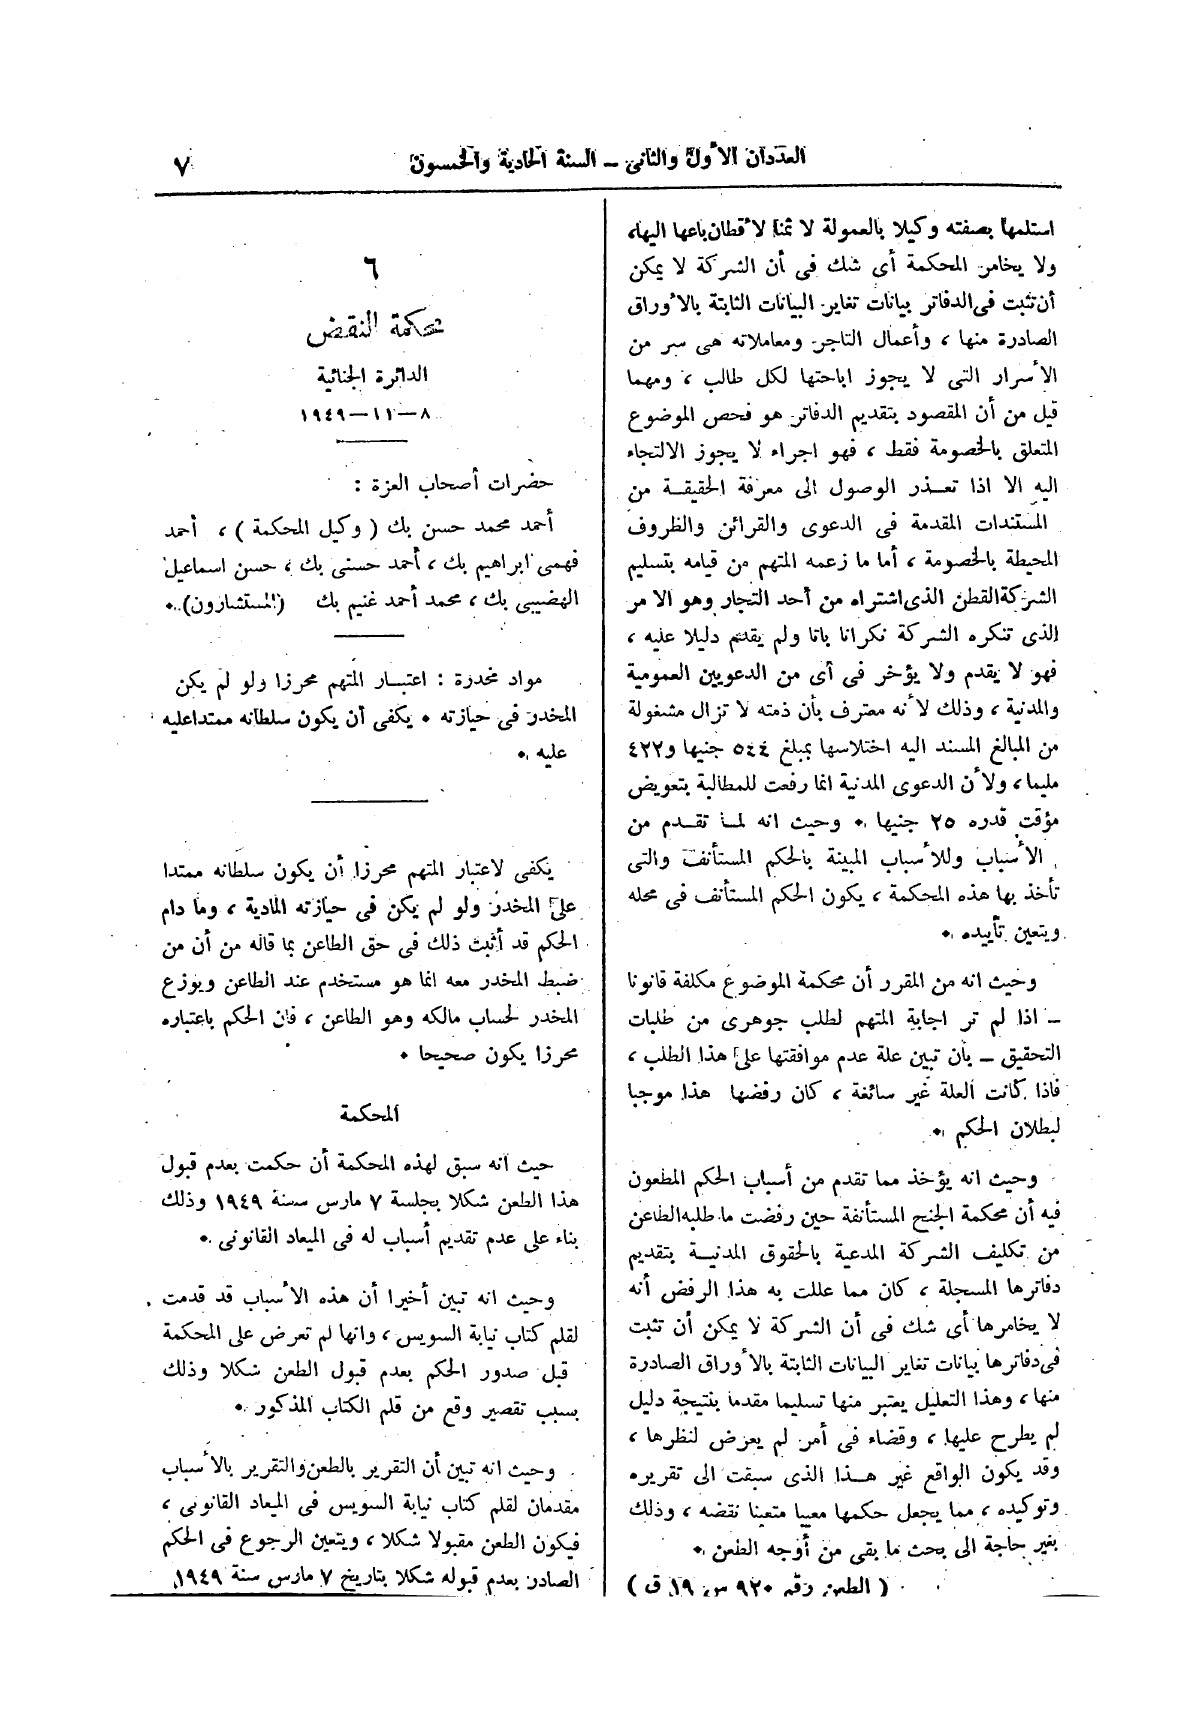 العددان الأول والثانى – السنة الحادية والخمسون
٧
استلمها بصفته وكيلا بالعمولة لا ثمنا لأقطان باعها اليها،
ولا يخامر المحكمة أى شك فى أن الشركة لا يمكن
أن تثبت فى الدفاتر بيانات تغاير البيانات الثابتة بالأوراق
الصادرة منها ، وأعمال التاجر ومعاملاته هى سر من
الأسرار التى لا يجوز اباحتها لكل طالب ، ومهما
قيل من أن المقصود بتقديم الدفاتر هو فحص الموضوع
المتعلق بالخصومة فقط ، فهو اجراء لا يجوز الالتجاء
اليه الا اذا تعذر الوصول الى معرفة الحقيقة من
المستندات المقدمة فى الدعوى والقرائن والظروف
المحيطة بالخصومة ، أما ما زعمه المتهم من قيامه بتسليم
الشركة القطن الذى اشتراه من أحد التجار وهو الامر
الذى تنكره الشركة نكرانا باتا ولم يقدم دليلا عليه ،
فهو لا يقدم ولا يؤخر فى أى من الدعويين العمومية
والمدنية ، وذلك لأنه معترف بأن ذمته لا تزال مشغولة
من المبالغ المسند اليه اختلاسها بمبلغ ٥٤٤ جنيها و٤٢٢
مليما ، ولأن الدعوى المدنية انما رفعت للمطالبة بتعويض
مؤقت قدره ٢٥ جنيها . وحيث انه لما تقدم من
الأسباب وللأسباب المبينة بالحكم المستأنف والتى
تأخذ بها هذه المحكمة ، يكون الحكم المستأنف فى محله
ويتعين تأييده .
وحيث انه من المقرر أن محكمة الموضوع مكلفة قانونا
– اذا لم تر اجابة المتهم لطلب جوهرى من طلبات
التحقيق – بأن تبين علة عدم موافقتها على هذا الطلب ،
فاذا كانت العلة غير سائغة ، كان رفضها هذا موجبا
لبطلان الحكم .
وحيث انه يؤخذ مما تقدم من أسباب الحكم المطعون
فيه أن محكمة الجنح المستأنفة حين رفضت ما طلبه الطاعن
من تكليف الشركة المدعية بالحقوق المدنية بتقديم
دفاترها المسجلة ، كان مما عللت به هذا الرفض أنه
لا يخامرها أى شك فى أن الشركة لا يمكن أن تثبت
فى دفاترها بيانات تغاير البيانات الثابتة بالأوراق الصادرة
منها ، وهذا التعليل يعتبر منها تسليما مقدما بنتيجة دليل
لم يطرح عليها ، وقضاء فى أمر لم يعرض لنظرها ،
وقد يكون الواقع غير هذا الذى سبقت الى تقريره
وتوكيده ، مما يجعل حكمها معيبا متعينا نقضه ، وذلك
بغير حاجة الى بحث ما بقى من أوجه الطعن .
( الطعن رقم ٩٢٠ س ١٩ ق )
٦
محكمة النقض
الدائرة الجنائية
٨–١١–١٩٤٩
حضرات أصحاب العزة :
أحمد محمد حسن بك ( وكيل المحكمة ) ، أحمد
فهمى ابراهيم بك ، أحمد حسنى بك ، حسن اسماعيل
الهضيبى بك ، محمد أحمد غنيم بك (المستشارون) .
مواد مخدرة : اعتبار المتهم محرزا ولو لم يكن
المخدر فى حيازته . يكفى أن يكون سلطانه ممتدا عليه
عليه .
يكفى لاعتبار المتهم محرزا أن يكون سلطانه ممتدا
على المخدر ولو لم يكن فى حيازته المادية ، وما دام
الحكم قد أثبت ذلك فى حق الطاعن بما قاله من أن من
ضبط المخدر معه انما هو مستخدم عند الطاعن ويوزع
المخدر لحساب مالكه وهو الطاعن ، فان الحكم باعتباره
محرزا يكون صحيحا .
المحكمة
حيث انه سبق لهذه المحكمة أن حكمت بعدم قبول
هذا الطعن شكلا بجلسة ٧ مارس سنة ١٩٤٩ وذلك
بناء على عدم تقديم أسباب له فى الميعاد القانونى .
وحيث انه تبين أخيرا أن هذه الأسباب قد قدمت
لقلم كتاب نيابة السويس ، وانها لم تعرض على المحكمة
قبل صدور الحكم بعدم قبول الطعن شكلا وذلك
بسبب تقصير وقع من قلم الكتاب المذكور .
وحيث انه تبين أن التقرير بالطعن والتقرير بالأسباب
مقدمان لقلم كتاب نيابة السويس فى الميعاد القانونى ،
فيكون الطعن مقبولا شكلا ، ويتعين الرجوع فى الحكم
الصادر بعدم قبوله شكلا بتاريخ ٧ مارس سنة ١٩٤٩.